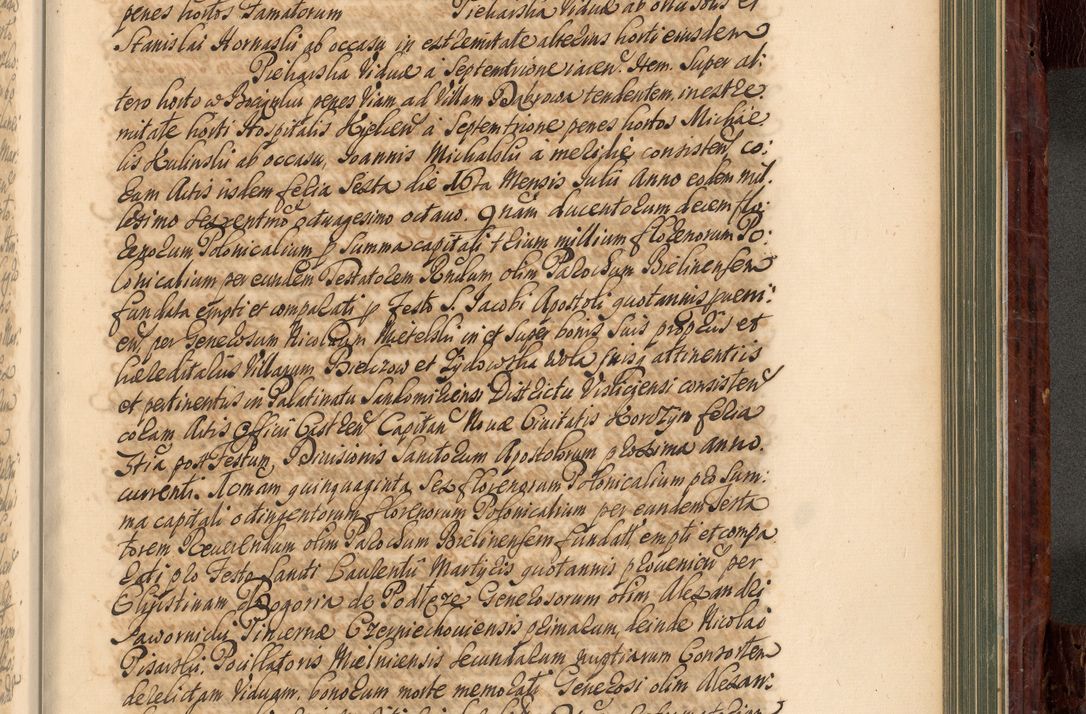 penes hortos Famatorum Pieharsha Viduæ ab ortu solis et
Stanislai Hornaslii ab occasu in extremitate alterius horti eiusdem
Pieharsha Viduæ a Septemtrione iacen. Item. Super al:
tero horto w Boczynku penes Viam ad Villam Dabrowa tendentem in extre:
mitate horti Hospitalis Kielcen a Septemtrione penes hortos Michae
lis Kulinslii ab occasu, Joannis Michalslii a meridie consisten co:
ram Actis iisdem feria Sexta die 16ta Mensis Julii Anno eodem mil:
lesimo sexcentmo octuagesimo octauo. 9nam ducentorum decem flo:
renorum Polonicalium p Summa capitali trium millium florenorum Po:
lonicalium per eundem Testatorem Rndum olim Parochum Bielinensem
fundata empti et comparati p Festo S. Jacobi Apostoli quotannis proueni:
en per Generosum Nicolaum Mietelski in et super bonis suis proprus et
hæreditarus Villarum Bielczow et Zydowska Wola suisq attinentiis
et pertinentiis in Palatinatu Sandomiriensi Districtu Visliciensi consisten
coram Actis Officii Castren Capitan Novæ Civitatis Korczyn feria
3tia post Festum Divisionis Sanctorum Apostolorum proxima anno
currenti. 10mam quinquaginta Sex florenorum Polonicalium pro Sum:
ma capitali octingentorum florenorum Polonicalium per eundem Testa
torem Reuerendum olim Parochum Bielinensem fundati empti et compa
rati pro Festo Sancti Laurentii Martyris quotannis prouenien per
Christinam Bogoria de Podleze Generosorum olim Alexandri
Jawornicki Pincernæ Czerniechouiensis primarum, deinde Nicolai
Pisarski, Pocillatoris Mielnicensis secundarum nuptiarum Consortem
derelictam Viduam, bonorum morte memorati Generosi olim Alexan: